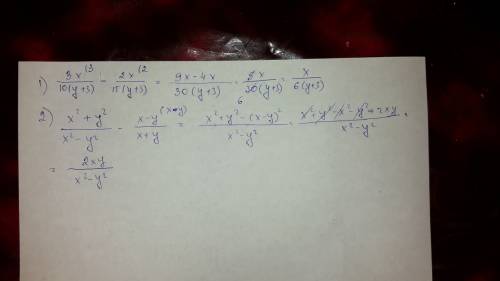 1) 3x^(3 / 10(y+3) - 2x^(2 / 15(y+3) = 9x-4x / 30(y+3) = 5x / 30(y+3) 6 = x / 6(y+3)
2) x²+y² / x²-y² - x-y^(x-y) / x+y = x²+y²-(x-y)² / x²-y² = x²+y²-x²-y²+2xy / x²-y² =
= 2xy / x²-y²